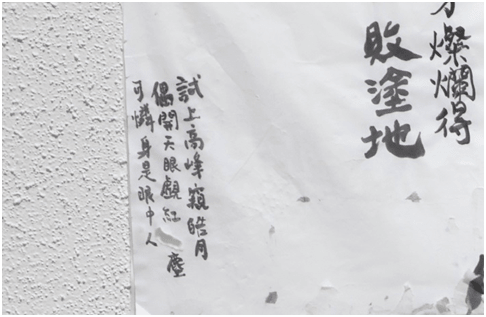 燦爛得
敗塗地
試上高峰窺皓月
偶開天眼覷紅塵
可憐身是眼中人